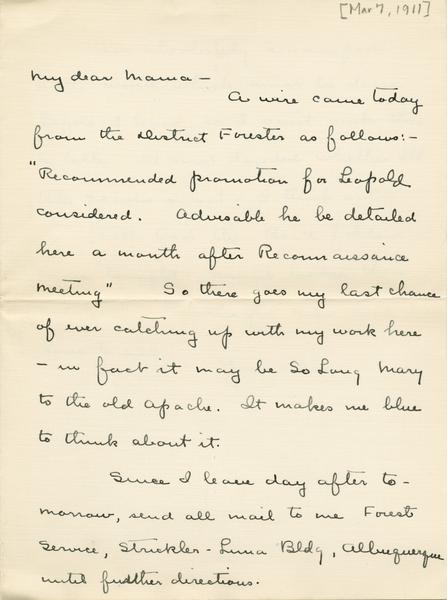 [Mar 7, 1911]
My dear Mama –
A wire came today
from the District Forester as follows:-
"Recommended promotion for Leopold
considered. Advisable he be detailed
here a month after Reconnaissance
meeting" So there goes my last chance
of ever catching up with my work here
– in fact it may be So Long Mary
to the old Apache. It makes me blue
to think about it.
Since I leave day after to-
morrow, send all mail to me Forest
Service, Strickler-Luna Bldg, Albuquerque
until further directions.